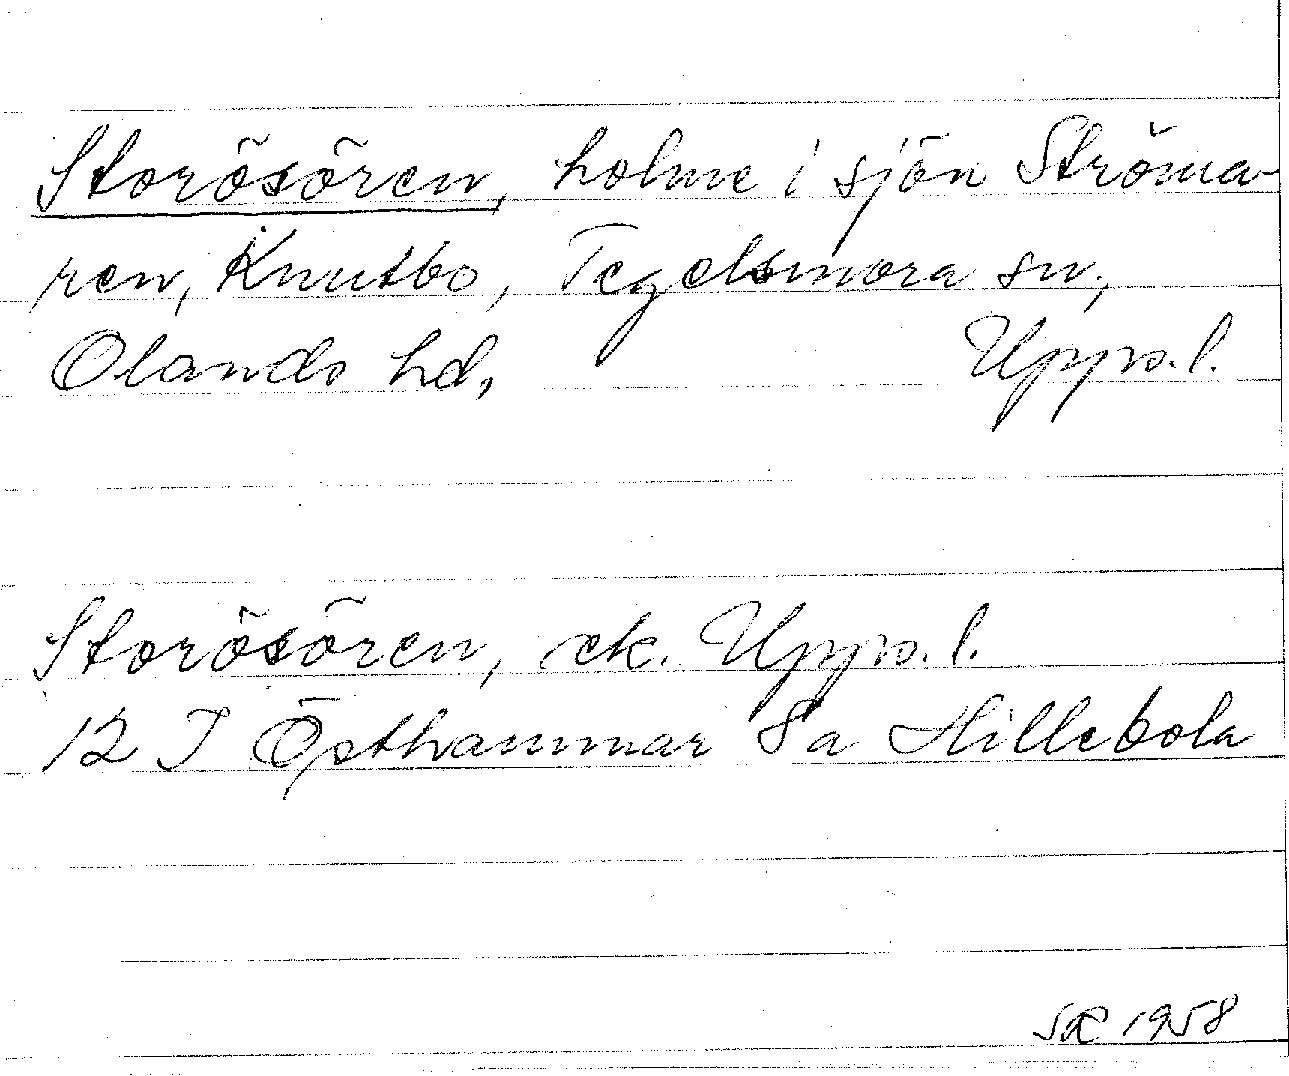 Storösören, holme i sjön Ströma-
ren, Knutbo, Tegelsmora sn,
Olands hd, Upps. l.
Storösören, ek. Upps. l.
12 I Östhammar 8a Hillebola
SR 1958